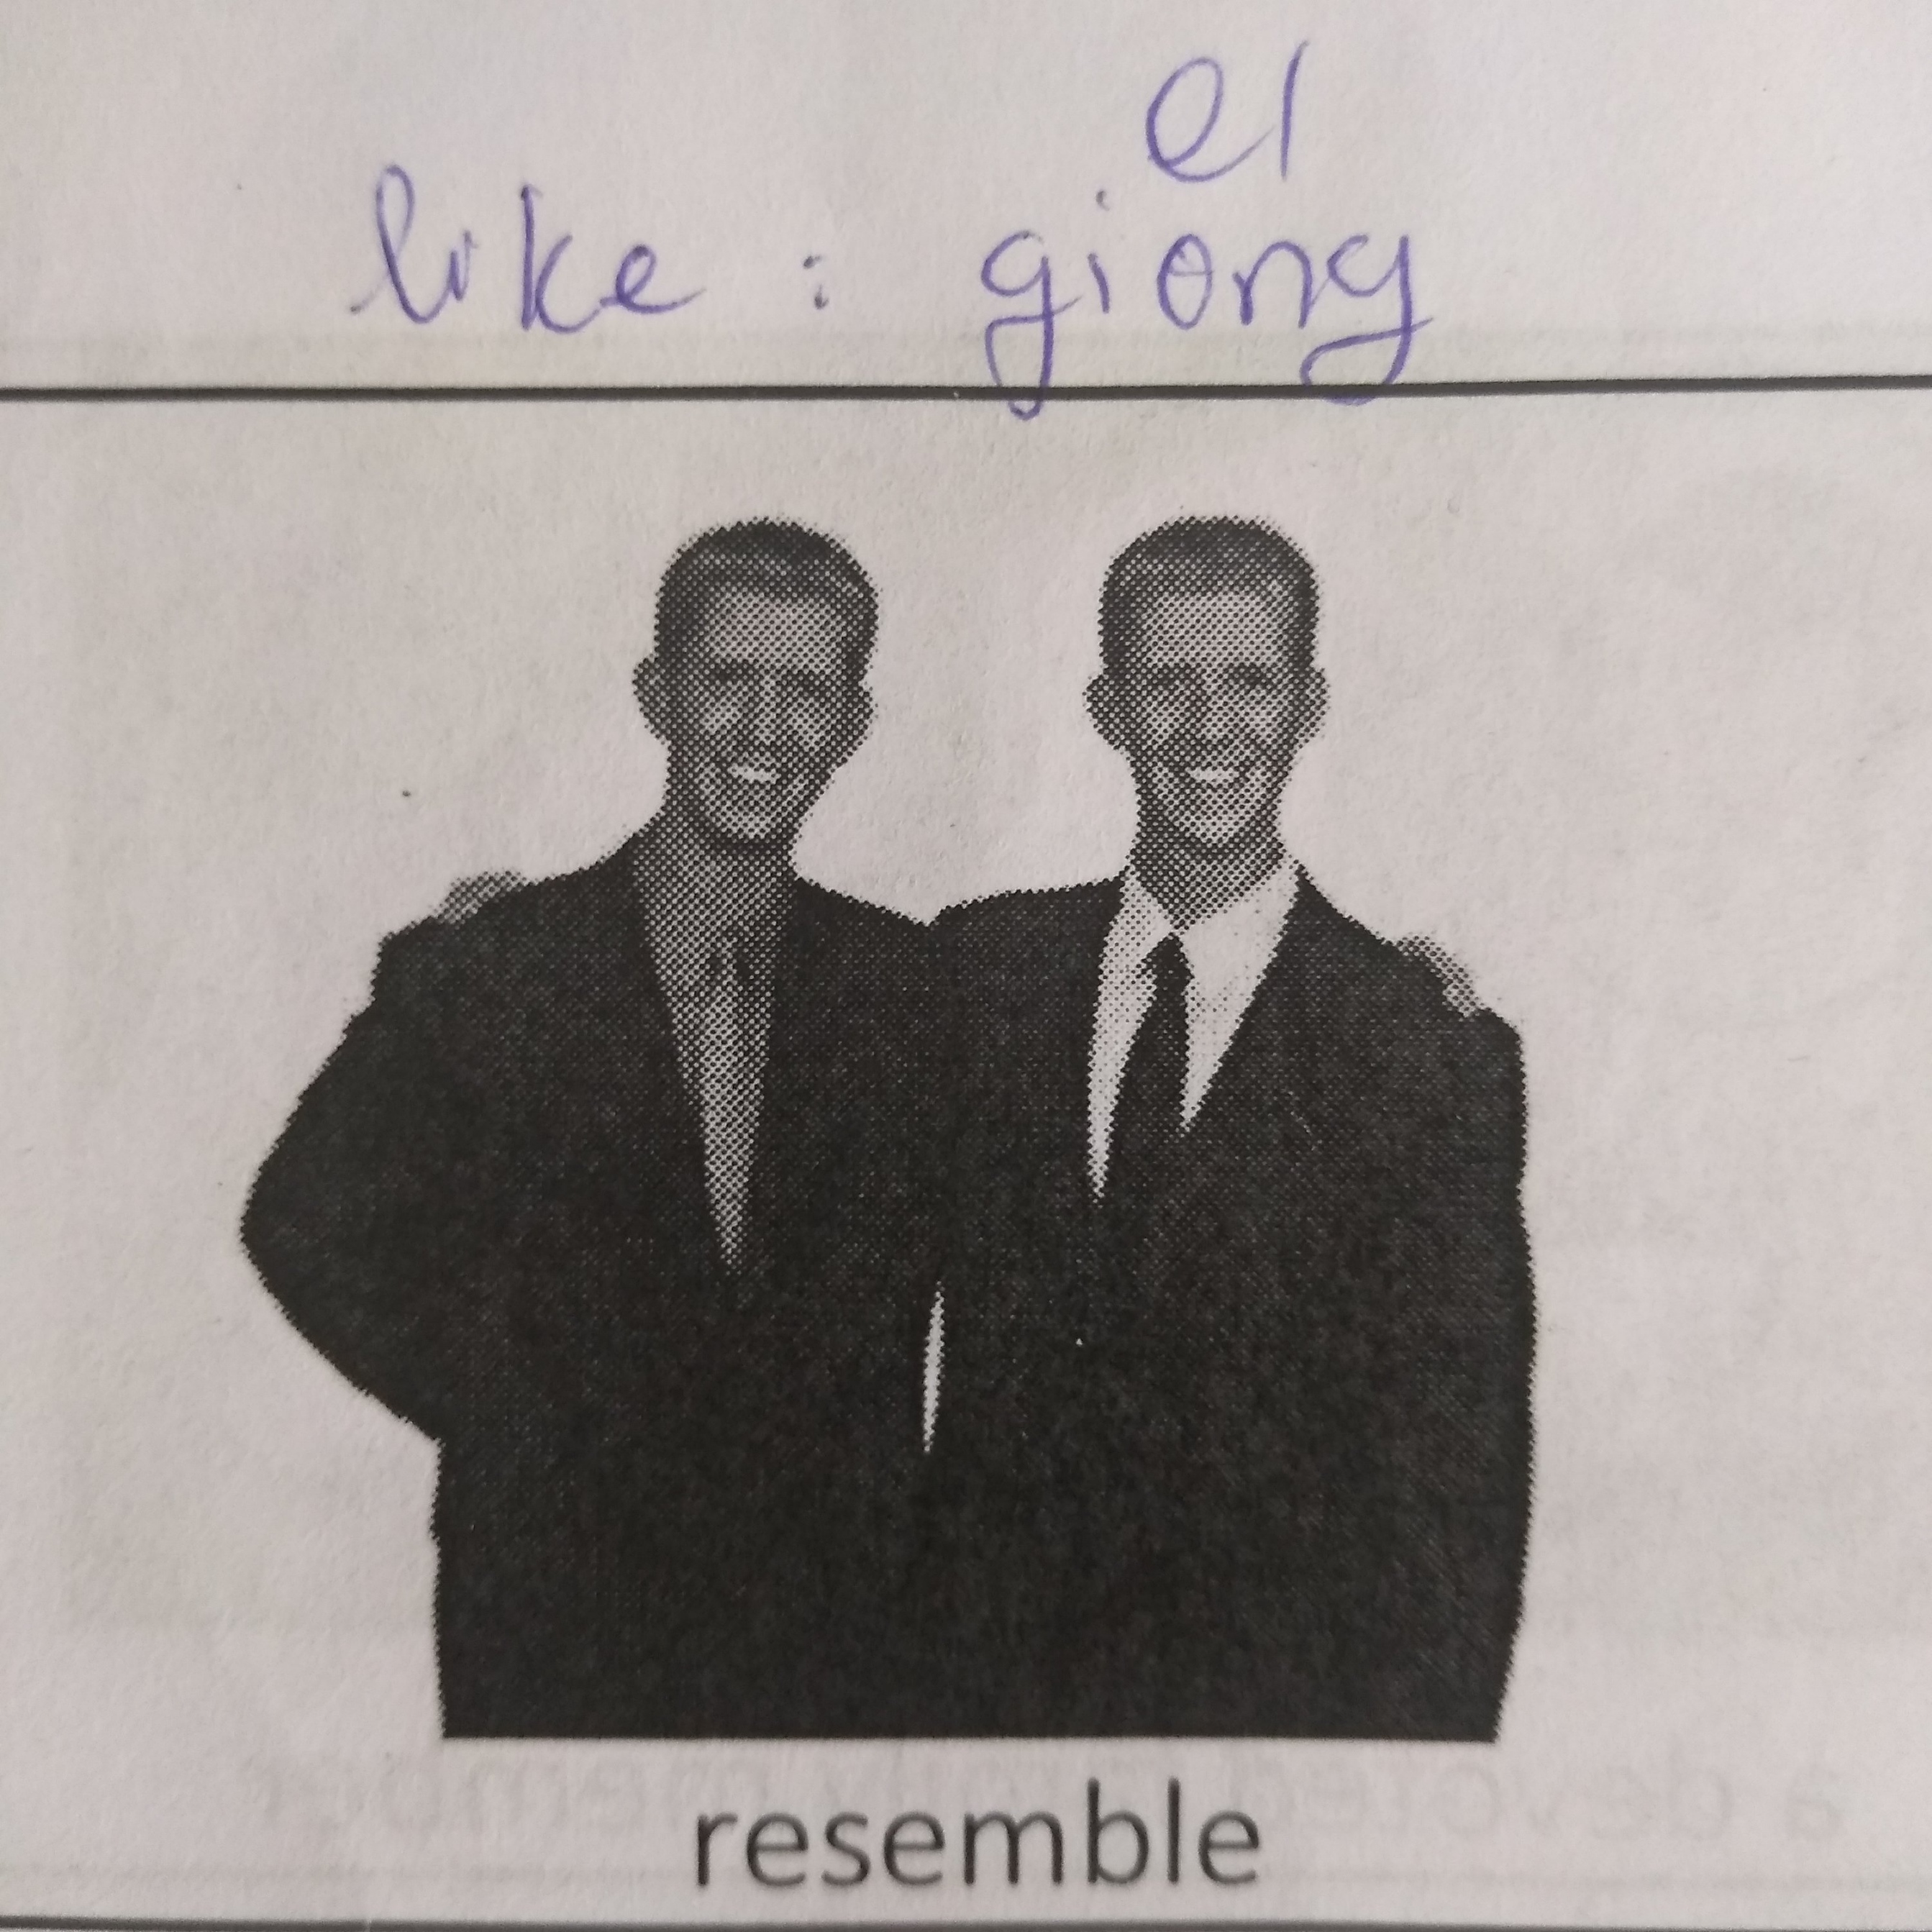 like : giống
resemble